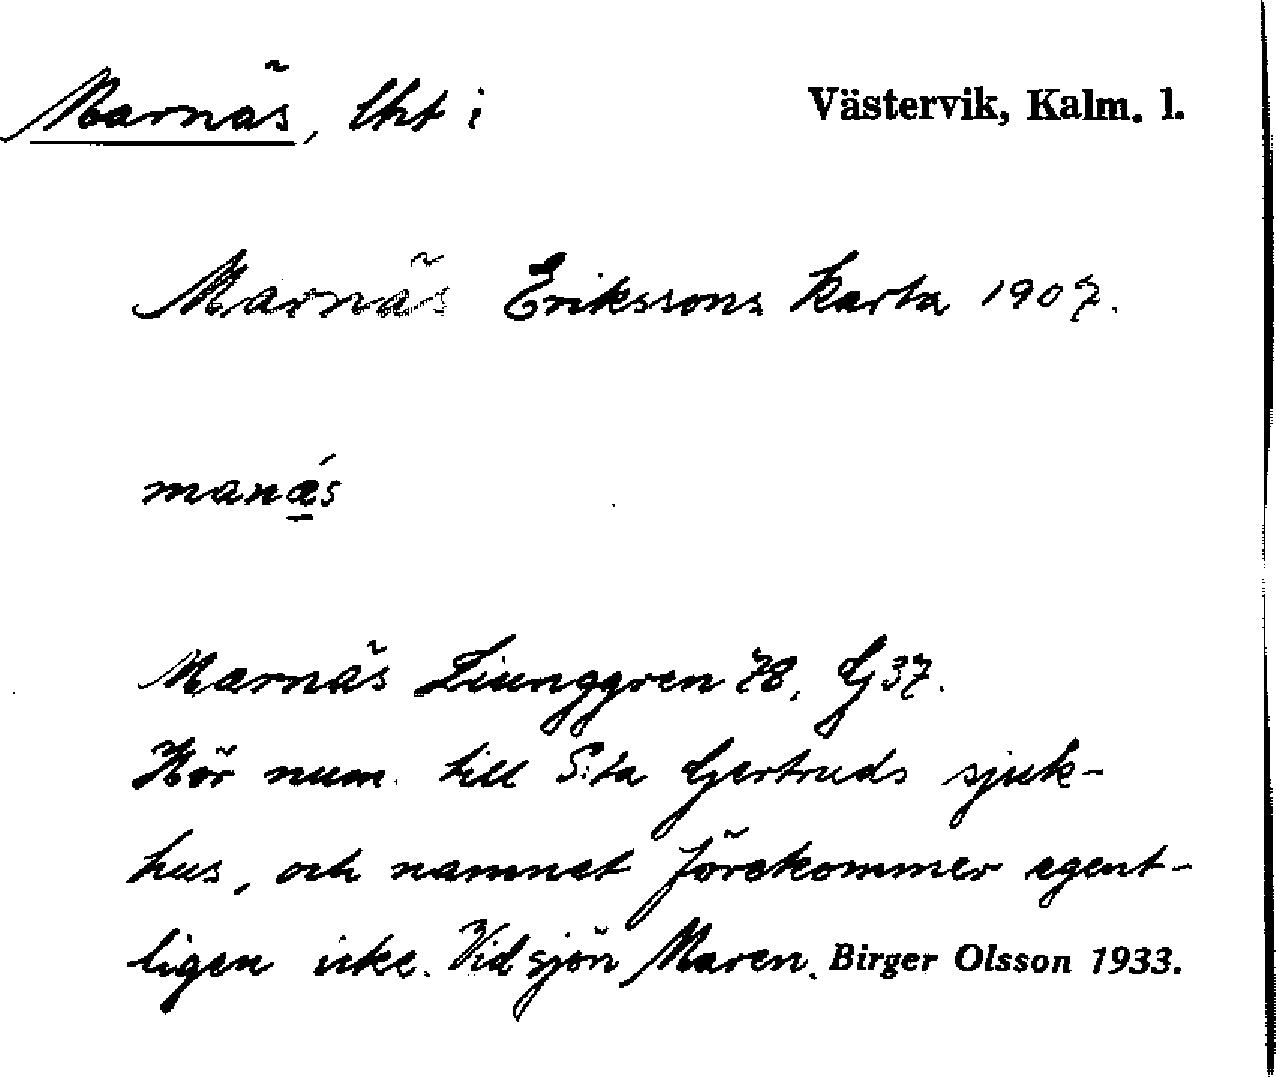 Marnäs, lht i Västervik, Kalm. l.
Marnäs Erikssons karta 1907.
manǽs
Marnäs Liunggren 78, G 37.
Hör num. till S:ta Gertruds sjuk-
hus, och namnet förekommer egent-
ligen icke. Vid sjön Maren. Birger Olsson 1933.